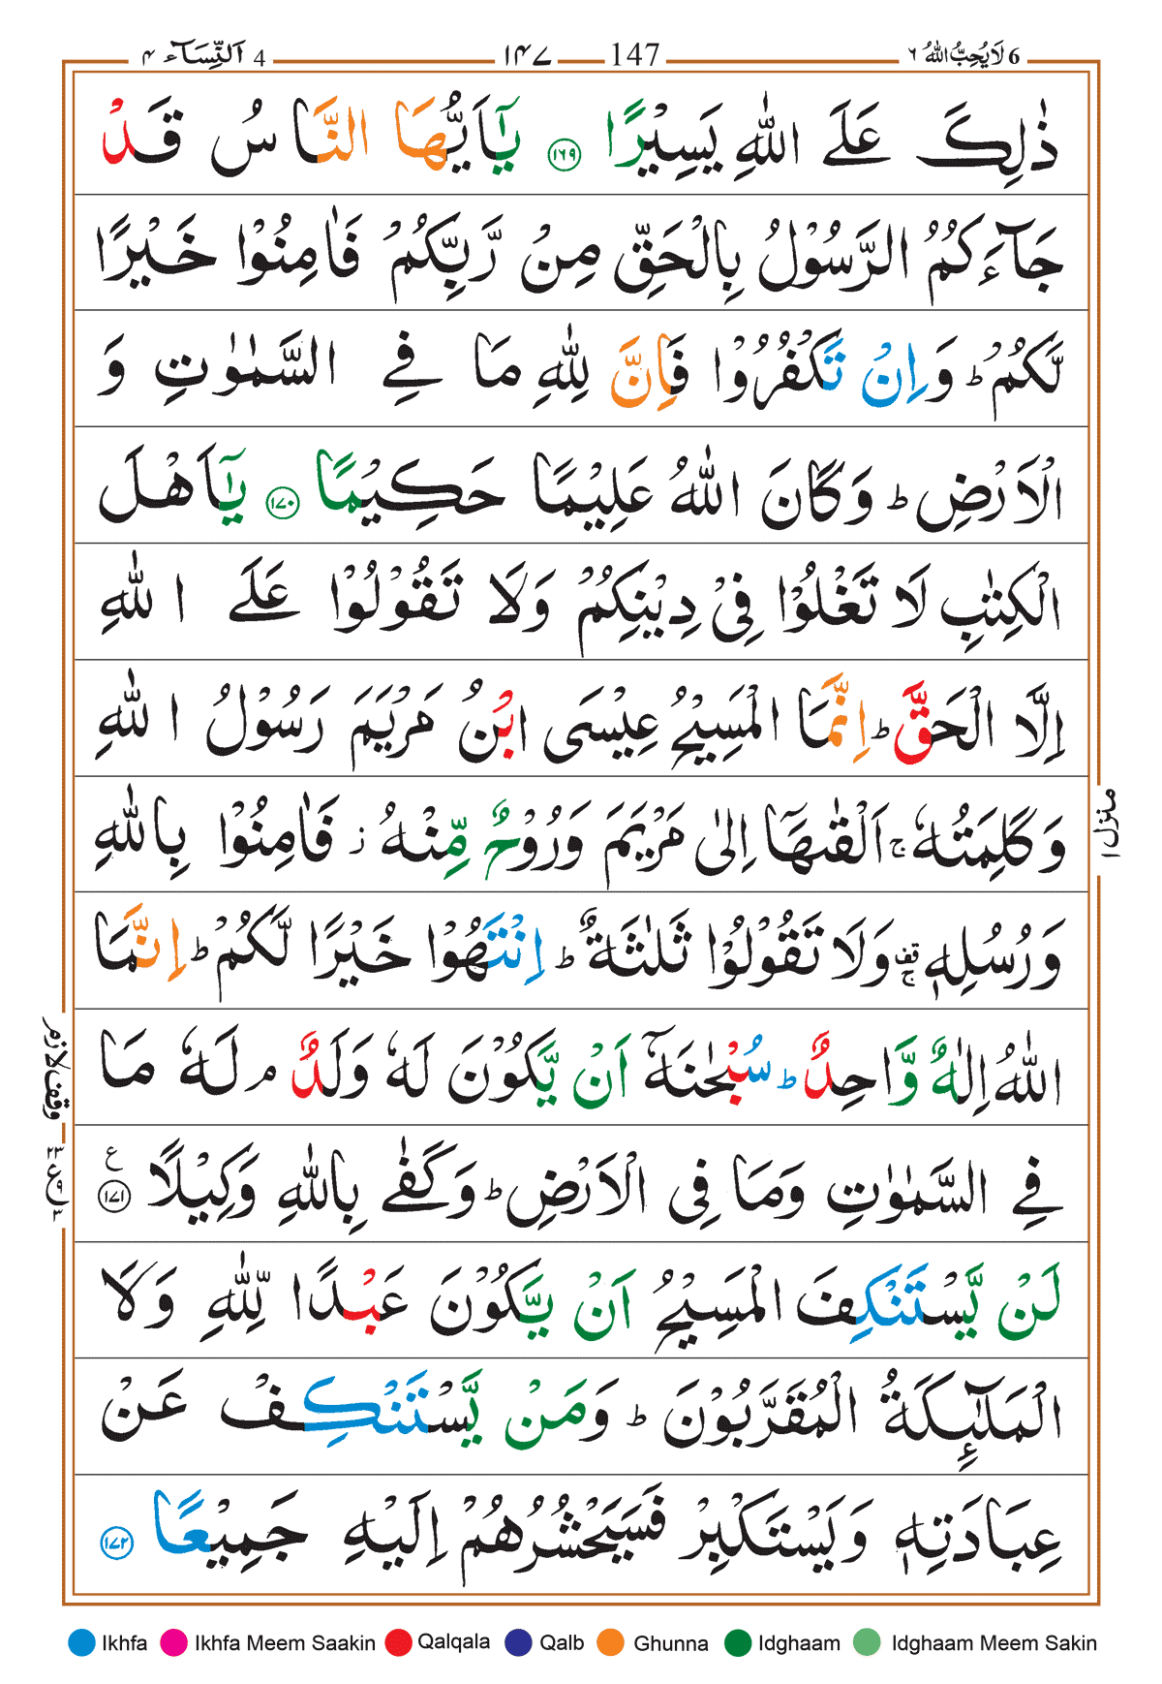 6 لَا يُحِبُّ اللّٰهُ ٦ 147 ١٤٧ 4 اَلنِّسَآء ٤
ذٰلِكَ عَلَى اللّٰهِ يَسِيْرًا ۝١٦٩ يٰۤاَيُّهَا النَّاسُ قَدْ
جَآءَكُمُ الرَّسُوْلُ بِالْحَقِّ مِنْ رَّبِّكُمْ فَاٰمِنُوْا خَيْرًا
لَّكُمْ ؕ وَاِنْ تَكْفُرُوْا فَاِنَّ لِلّٰهِ مَا فِي السَّمٰوٰتِ وَ
الْاَرْضِ ؕ وَكَانَ اللّٰهُ عَلِيْمًا حَكِيْمًا ۝١٧٠ يٰۤاَهْلَ
الْكِتٰبِ لَا تَغْلُوْا فِيْ دِيْنِكُمْ وَلَا تَقُوْلُوْا عَلَى اللّٰهِ
اِلَّا الْحَقَّ ؕ اِنَّمَا الْمَسِيْحُ عِيْسَى ابْنُ مَرْيَمَ رَسُوْلُ اللّٰهِ
وَكَلِمَتُهٗ ۚ اَلْقٰىهَاۤ اِلٰى مَرْيَمَ وَرُوْحٌ مِّنْهُ ز فَاٰمِنُوْا بِاللّٰهِ
وَرُسُلِهٖ قف ۚ وَلَا تَقُوْلُوْا ثَلٰثَةٌ ؕ اِنْتَهُوْا خَيْرًا لَّكُمْ ؕ اِنَّمَا
اللّٰهُ اِلٰهٌ وَّاحِدٌ ؕ سُبْحٰنَهٗۤ اَنْ يَّكُوْنَ لَهٗ وَلَدٌ ۘ لَهٗ مَا
فِي السَّمٰوٰتِ وَمَا فِي الْاَرْضِ ؕ وَكَفٰى بِاللّٰهِ وَكِيْلًا ع ۝١٧١
لَنْ يَّسْتَنْكِفَ الْمَسِيْحُ اَنْ يَّكُوْنَ عَبْدًا لِّلّٰهِ وَلَا
الْمَلٰٓئِكَةُ الْمُقَرَّبُوْنَ ؕ وَمَنْ يَّسْتَنْكِفْ عَنْ
عِبَادَتِهٖ وَيَسْتَكْبِرْ فَسَيَحْشُرُهُمْ اِلَيْهِ جَمِيْعًا ۝١٧٢
منزل ١
وقف لازم
Ikhfa Ikhfa Meem Saakin Qalqala Qalb Ghunna Idghaam Idghaam Meem Sakin